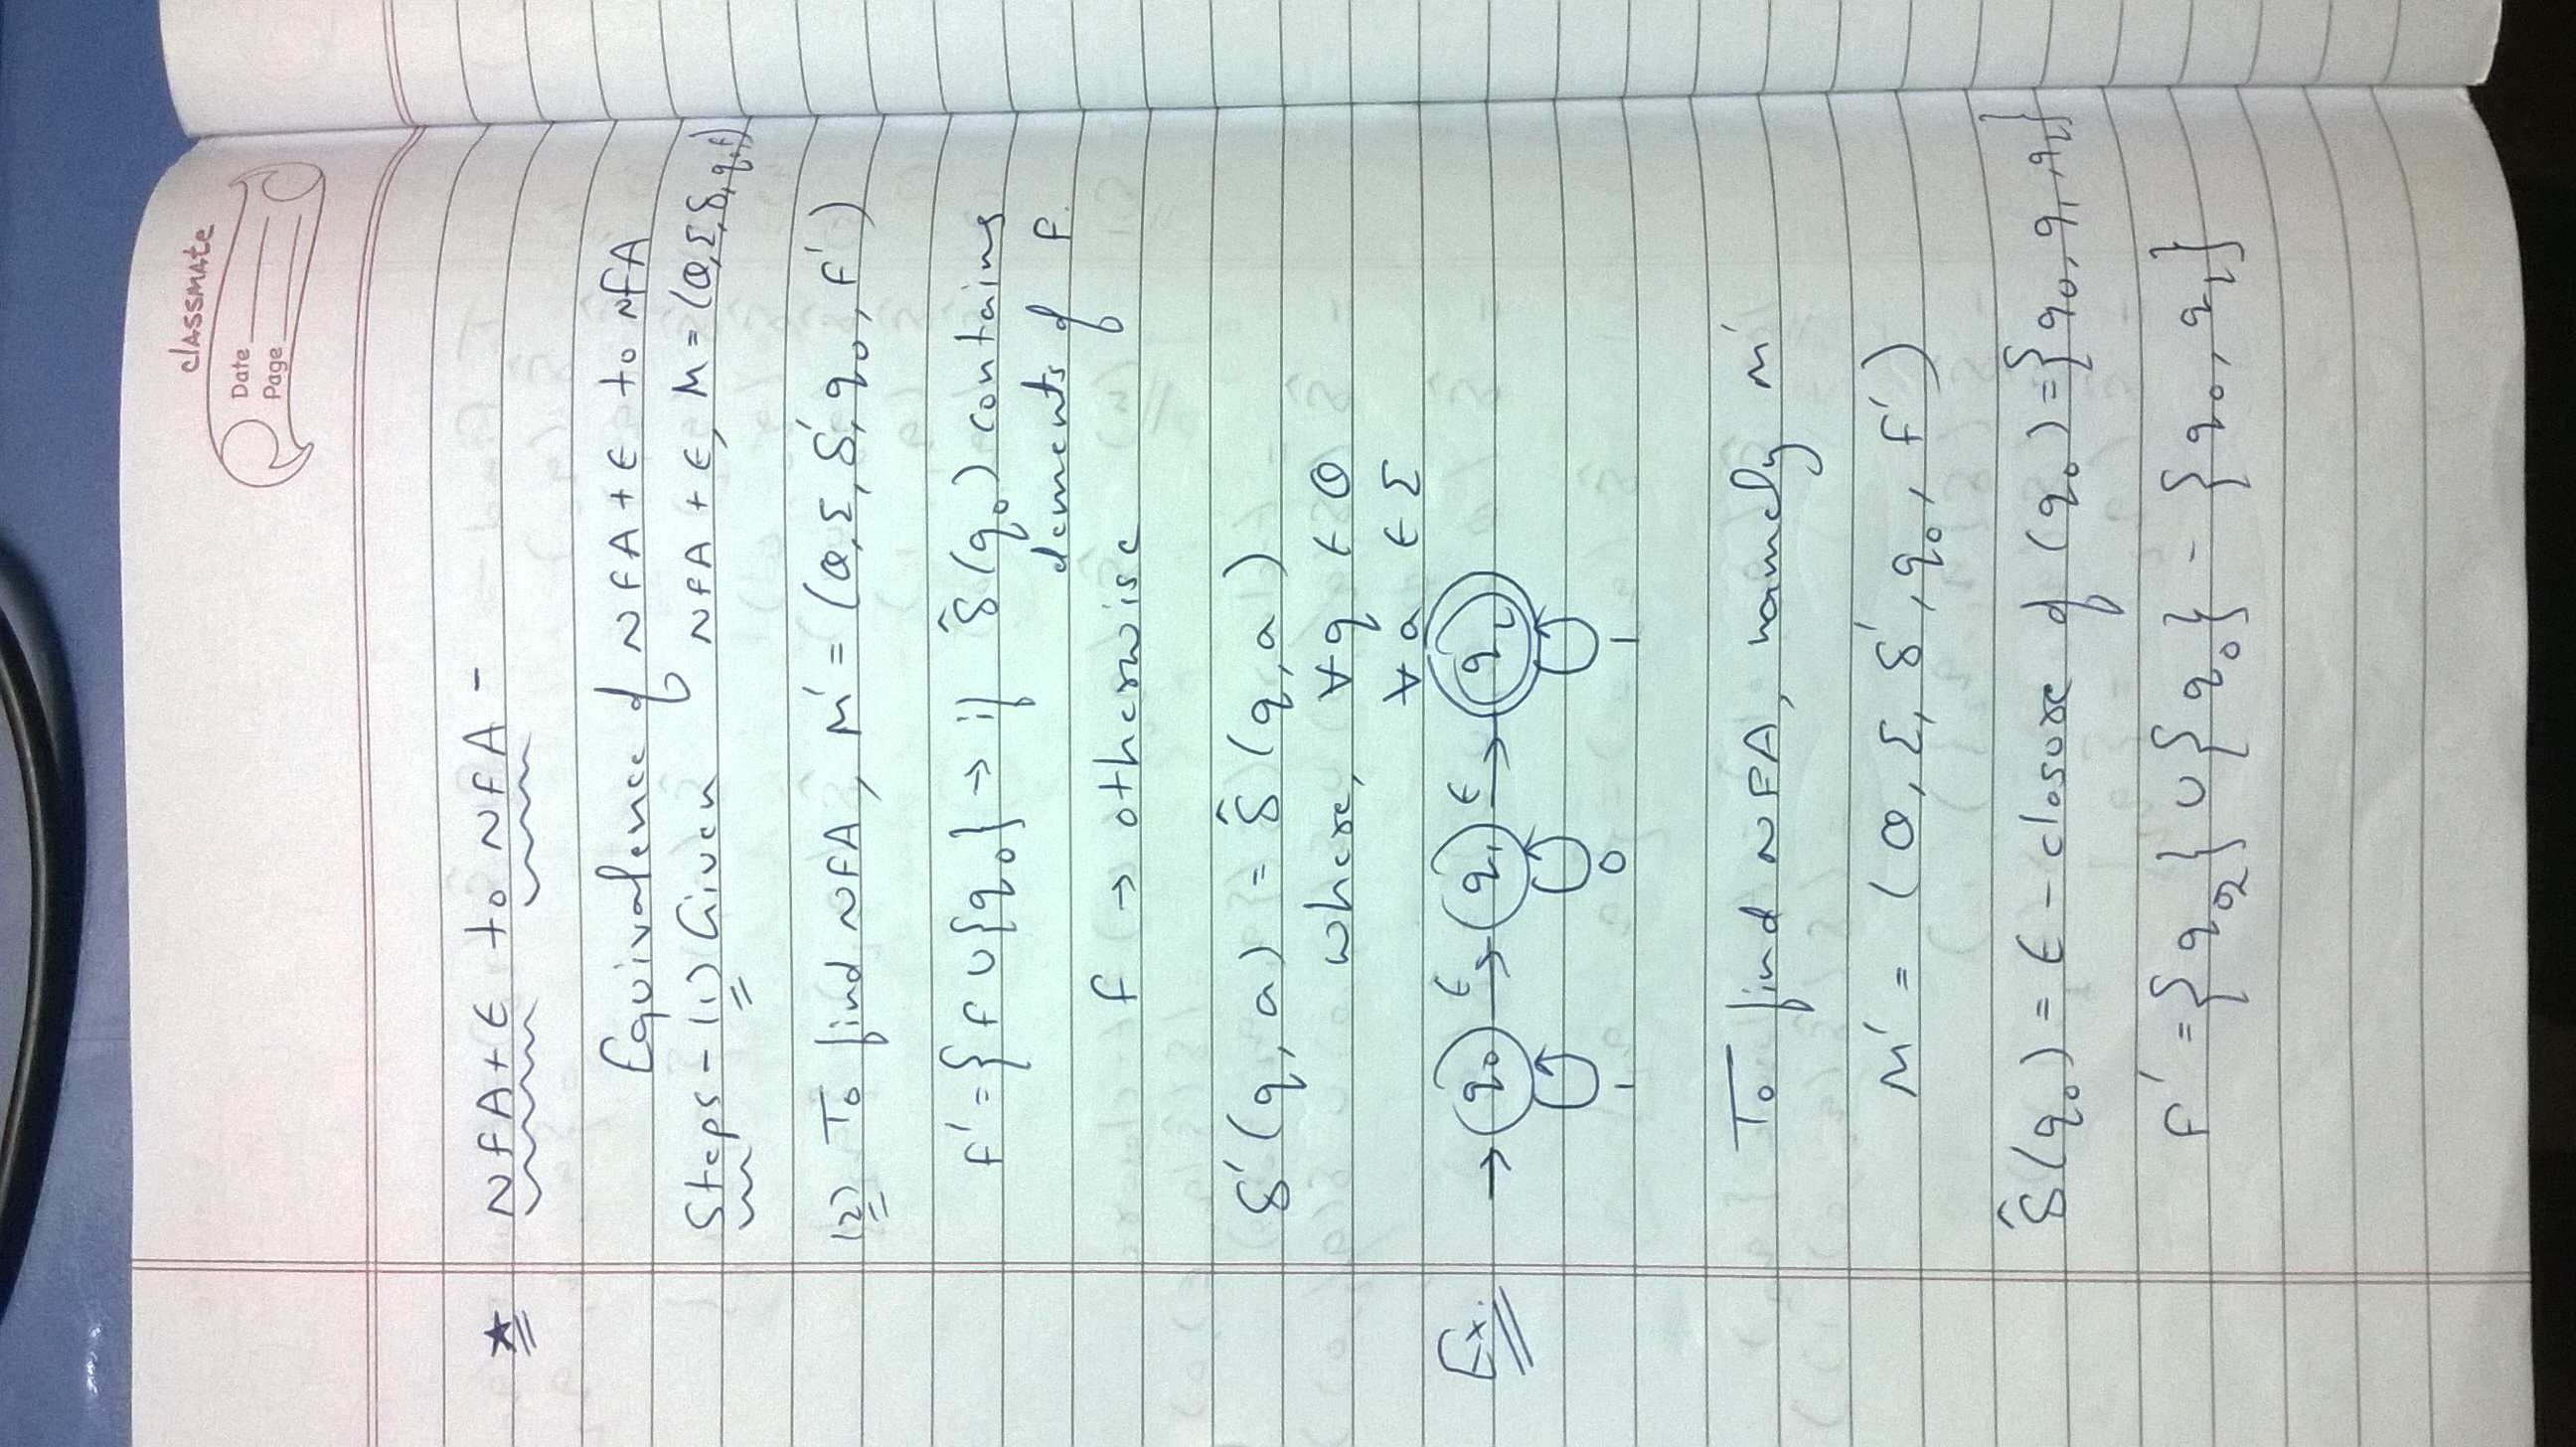 classmate
Date
Page
★ NFA+ε to NFA -
Equivalence of NFA+ε to NFA
Steps - (1) Given NFA + ε, M = (Q, Σ, δ, q₀, F)
(2) To find NFA, M' = (Q, Σ, δ', q₀, F')
F' = { F ∪ {q₀} → if δ̂(q₀) contains
elements of F.
F → otherwise
δ'(q, a) = δ̂(q, a)
where, ∀q ∈ Q
∀a ∈ Σ
Ex. → q₀ ε → q₁ ε → q₂
1 0 1
To find NFA, namely M'
M' = (Q, Σ, δ', q₀, F')
δ̂(q₀) = ε - closure of (q₀) = {q₀, q₁, q₂}
F' = {q₂} ∪ {q₀} - {q₀, q₂}